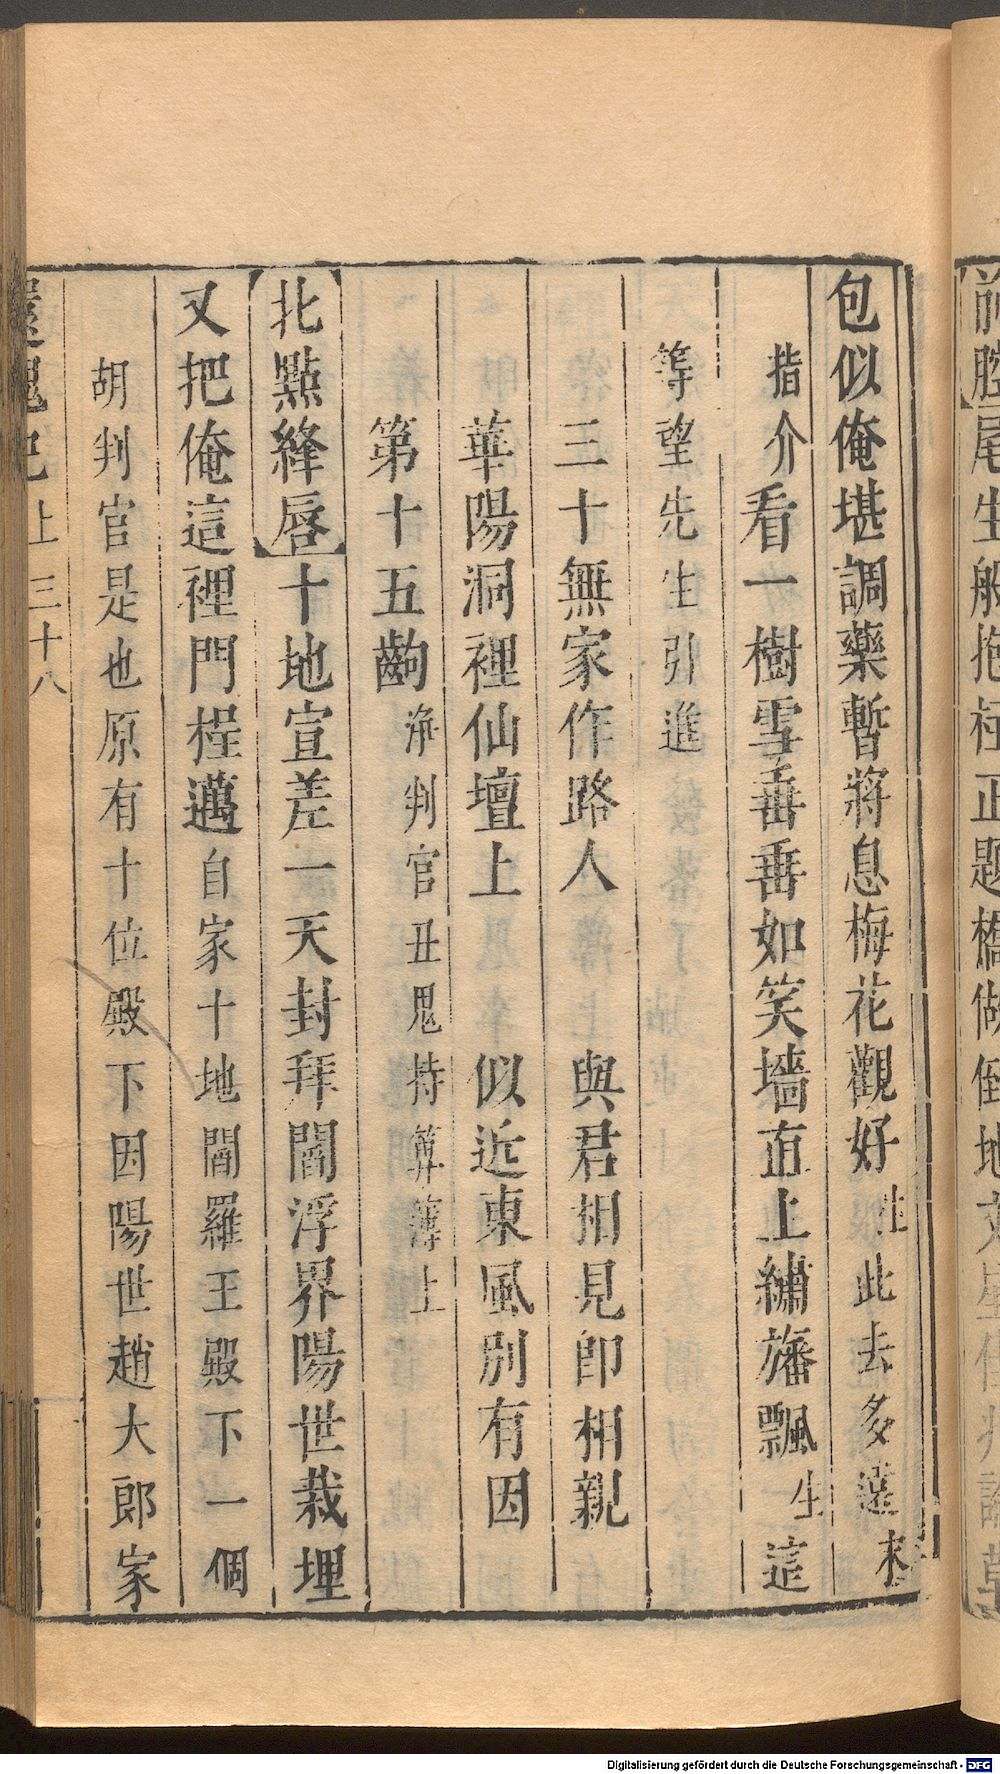 包似俺堪調藥暫將息梅花觀好生此去多遠末
指介看一樹雪垂垂如笑墻直上繡旛飄生這
等望先生引進
三十無家作路人　與君相見即相親
華陽洞裡仙壇上　似近東風別有因
第十五齣　淨判官丑鬼持筭簿上
【北點絳唇】十地宣差一天封拜閻浮界陽世栽埋
又把俺這裡門桯邁自家十地閻羅王殿下一個
胡判官是也原有十位殿下因陽世趙大郎家
還魂記上 三十八
尾生般抱柱正題橋做倒地文星佳
Digitalisierung gefördert durch die Deutsche Forschungsgemeinschaft - DFG